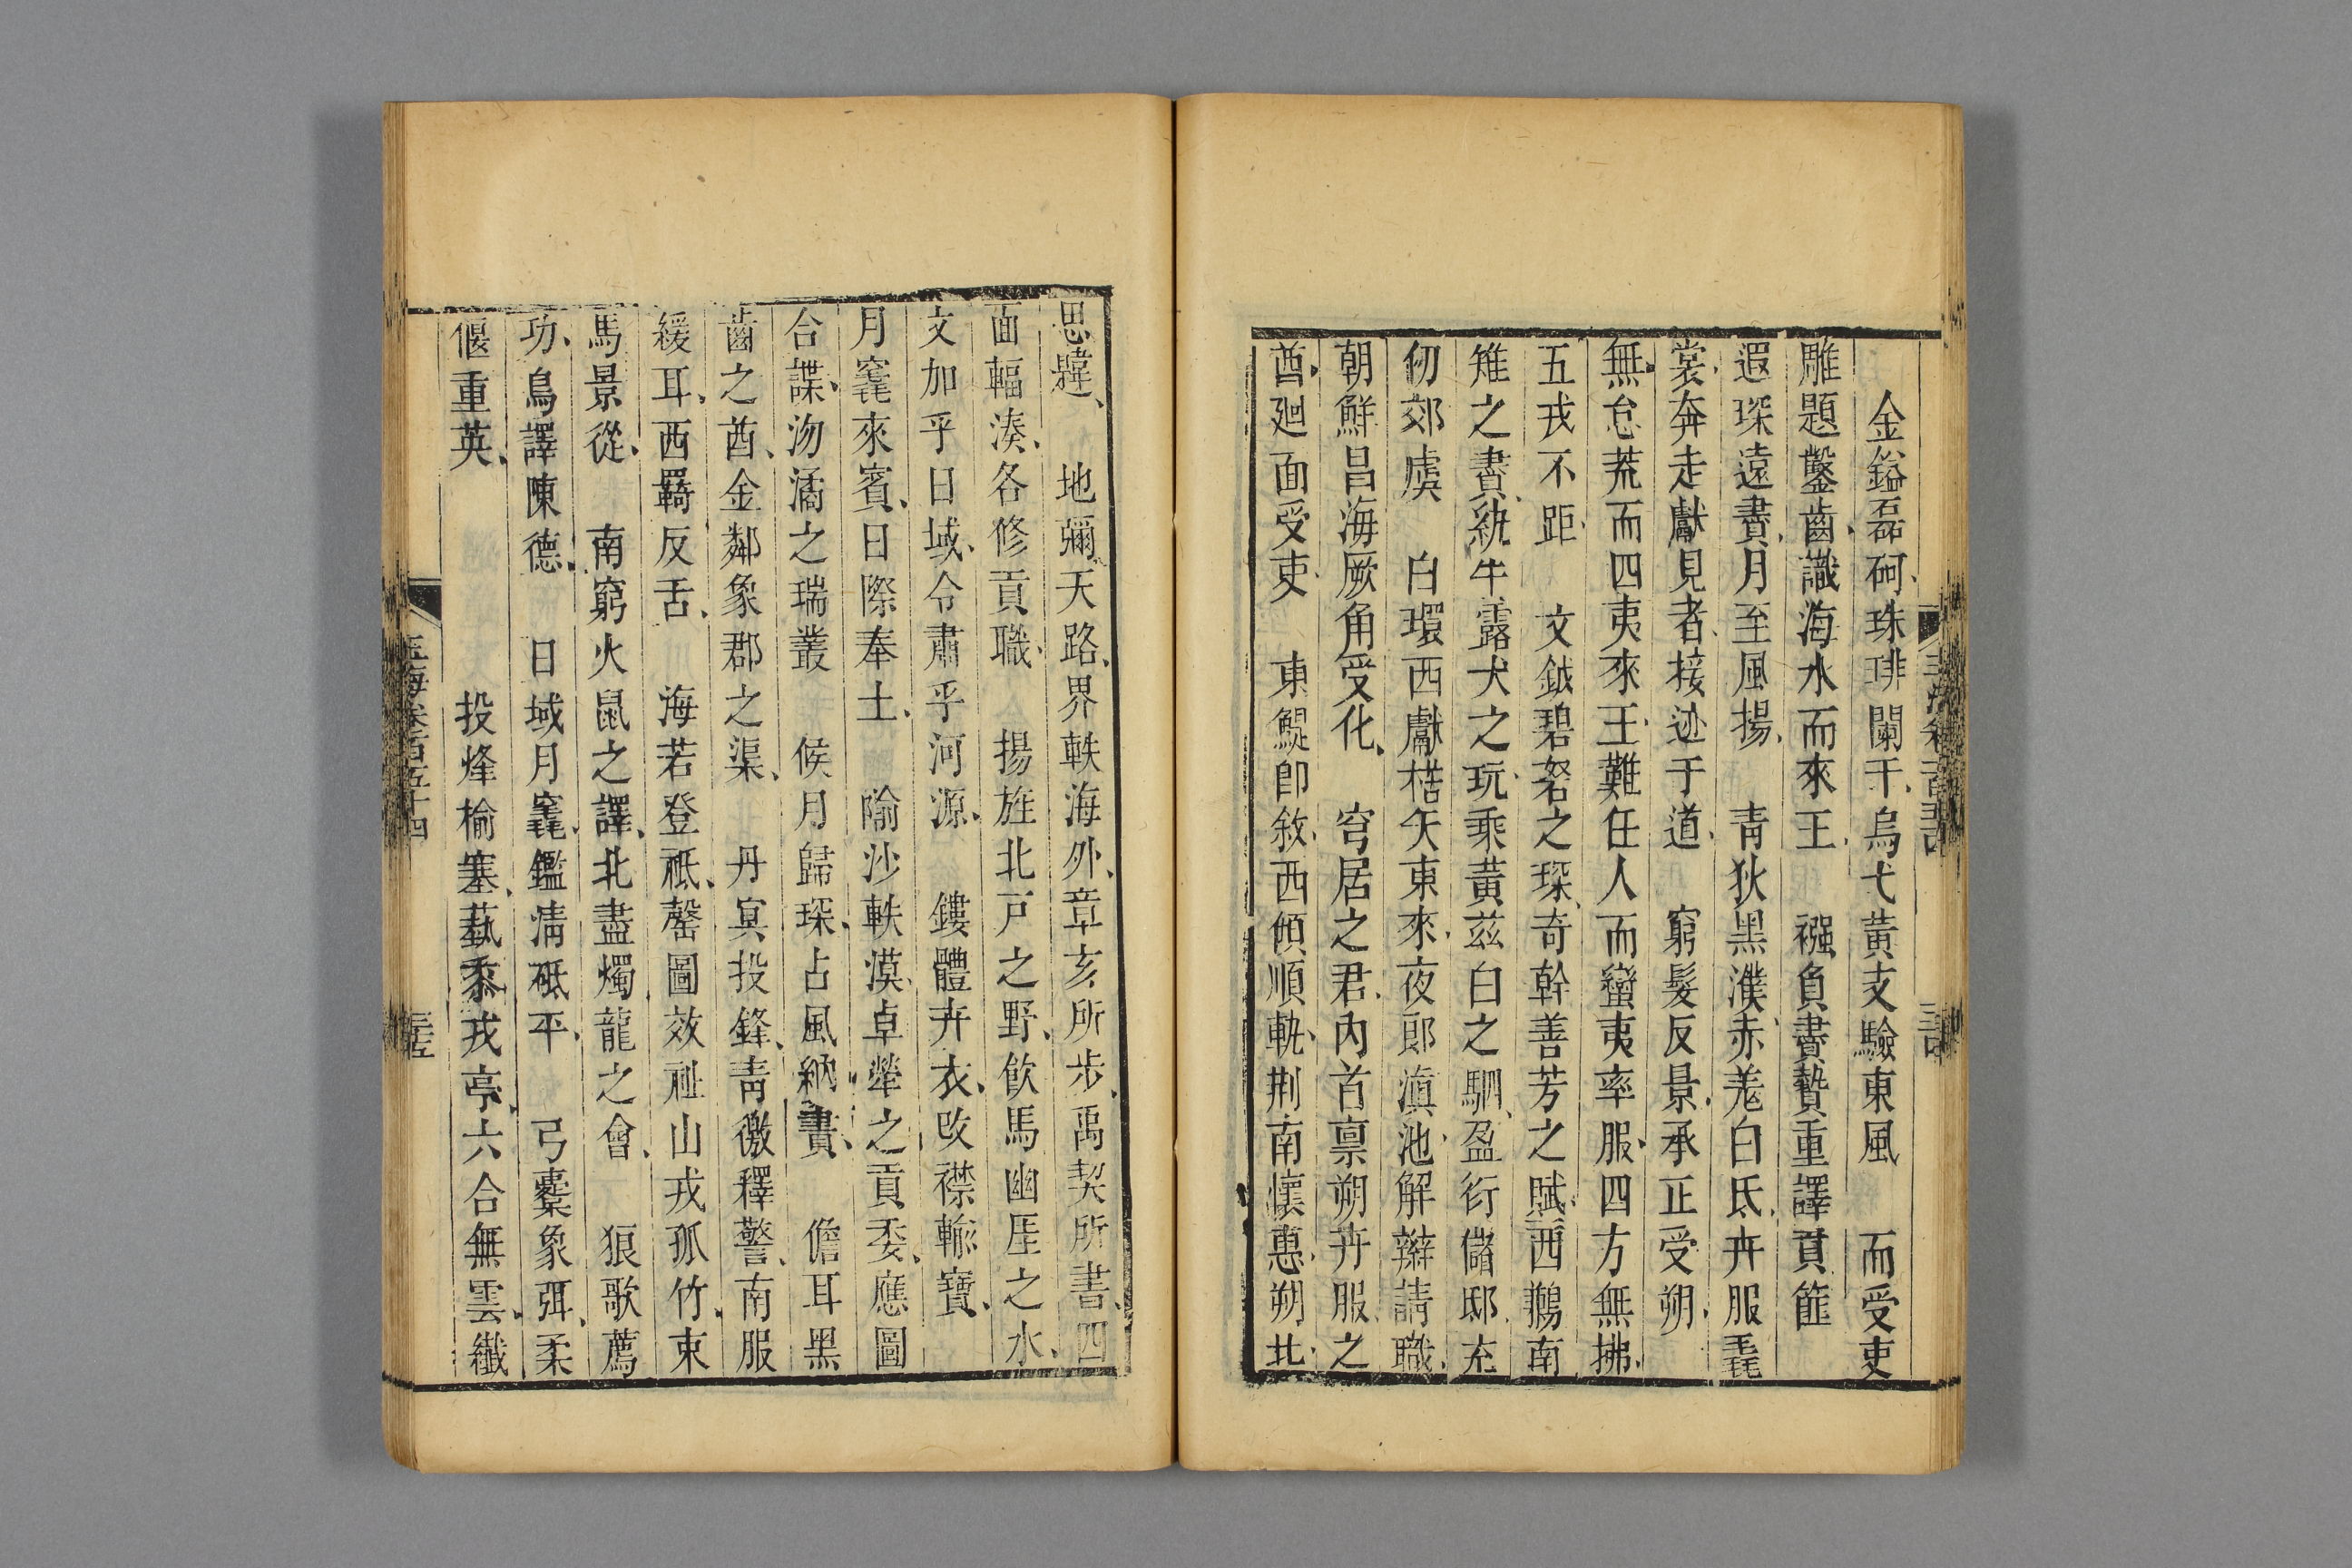 金鎰磊砢珠琲闌干烏弋黄支驗東風　而受吏
雕題鑿齒識海水而來王　襁負賮贄重譯貢篚
遐琛遠賮月至風揚　青狄黑濮赤羌白氐卉服毳
裳奔走獻見者接迹于道　窮髮反景承正受朔
無怠荒而四夷來王難任人而蠻夷率服四方無拂
五戎不距　文鉞碧砮之琛奇幹善芳之賦西鶼南
雉之賮紈牛露犬之玩乘黄茲白之駟盈衍儲邸充
仞郊虞　白環西獻楛矢東來夜郎滇池解辮請職
朝鮮昌海厥角受化　穹居之君内首禀朔卉服之
酋廻面受吏　東鯷即敘西傾順軌荆南懷惠朔北
思韙　地彌天路界軼海外章亥所步禹契所書四
面輻湊各修貢職　揚旌北戸之野飲馬幽厓之水
文加乎日域令肅乎河源　鏤體卉衣改襟輸寶
月竁來賓日際奉土　隃沙軼漠卓犖之貢委應圖
合諜沕潏之瑞叢　候月歸琛占風納賮　儋耳黑
齒之酋金鄰象郡之渠　丹冥投鋒青徼釋警南服
緩耳西羈反舌　海若登祗罄圖效祉山戎孤竹束
馬景從　南窮火鼠之譯北盡燭龍之會　狼歌薦
功鳥譯陳德　日域月竁鑑清砥平　弓櫜象弭柔
偃重英　投烽榆塞蓺黍戎亭六合無雲纖
玉海卷百五十四